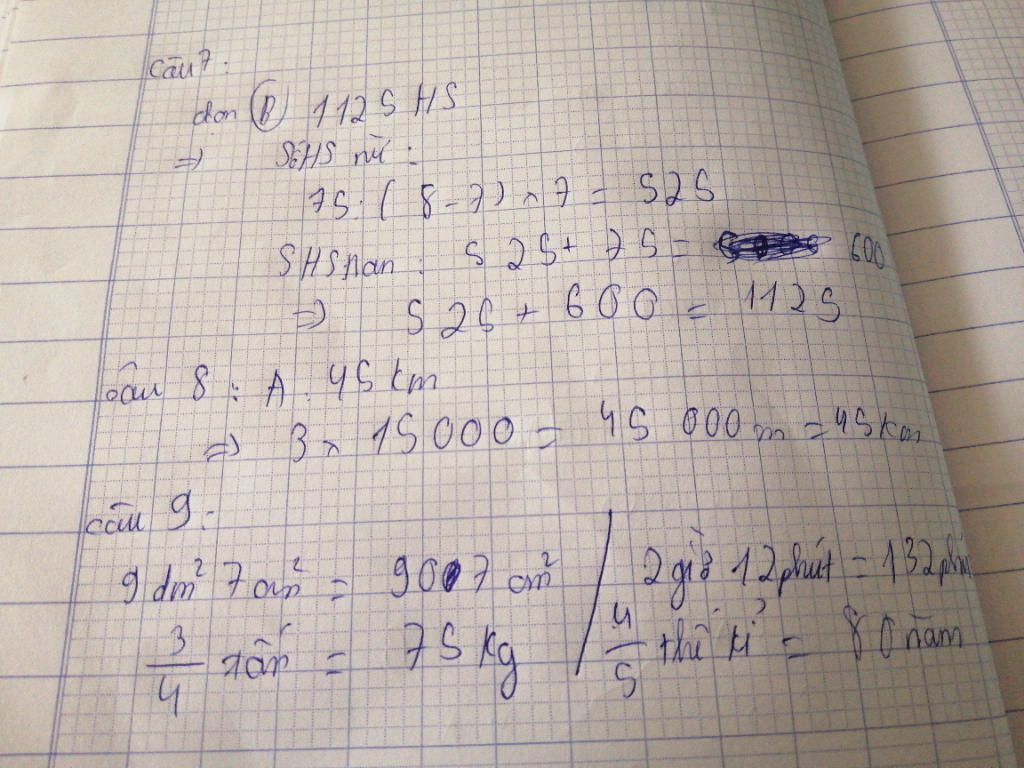 Câu 7:
chọn (B) 1125 HS
=> Số HS nữ:
75:(8-7)x7=525
SHS nam: 525+75= 600
=> 525+600=1125
câu 8: A. 45 km
=> 3x15000=45 000 m=45 km
câu 9:
9 dm² 7 cm² = 907 cm² / 2 giờ 12 phút = 132 phút
3/4 tấn = 75 kg / 4/5 thế kỉ = 80 năm